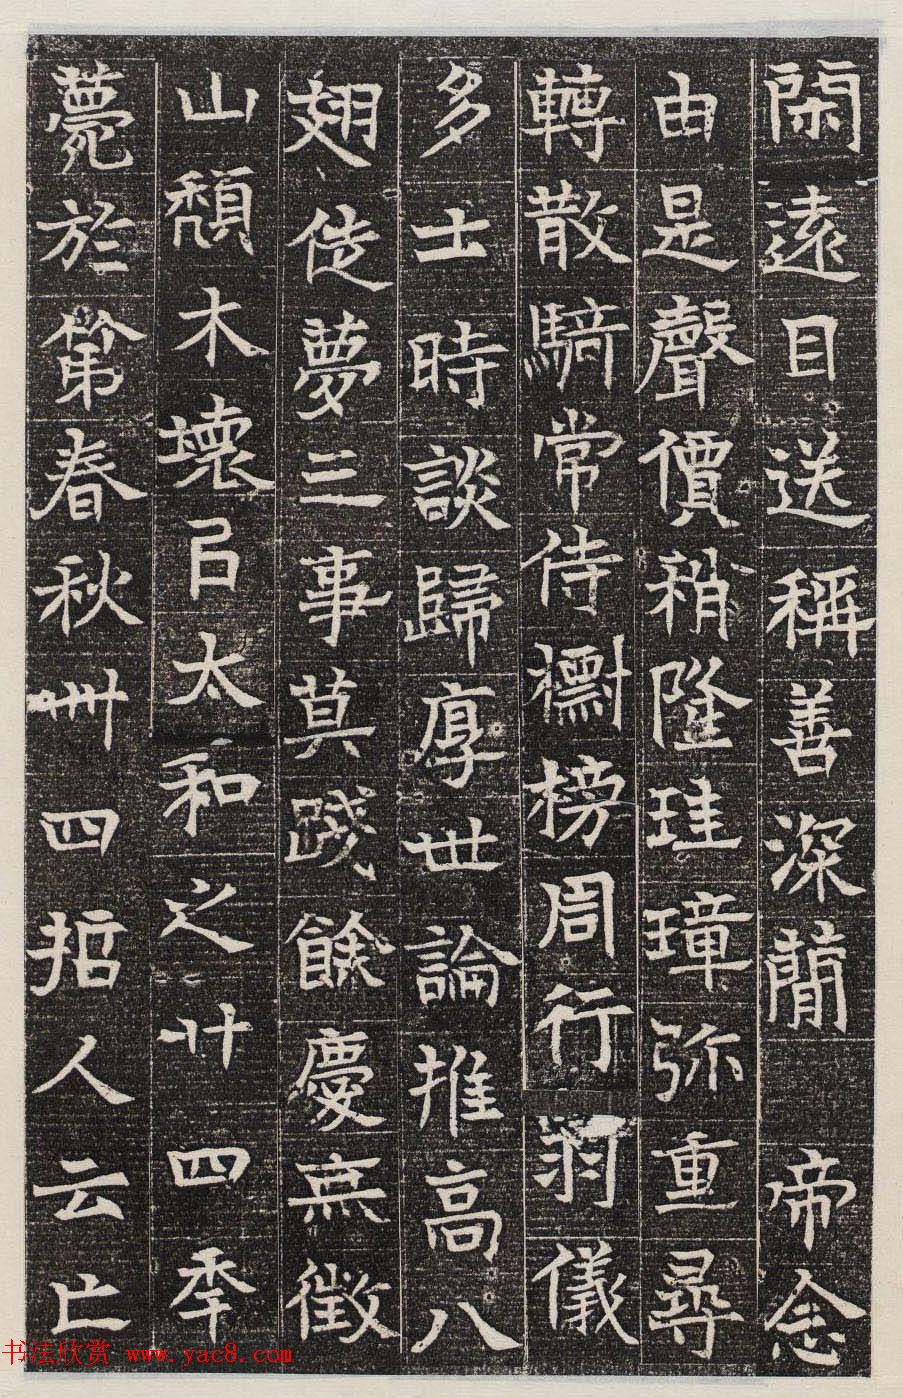 閑遠目送稱善深簡帝念
由是聲價稍隆珪璋弥重尋
轉散騎常侍襽榜周行羽儀
多士時談歸厚世論推高八
翅徙夢三事莫踐餘慶無徵
山頹木壞㠯太和之廿四季
薨於第春秋卌四哲人云亡
书法欣赏 www.yac8.com